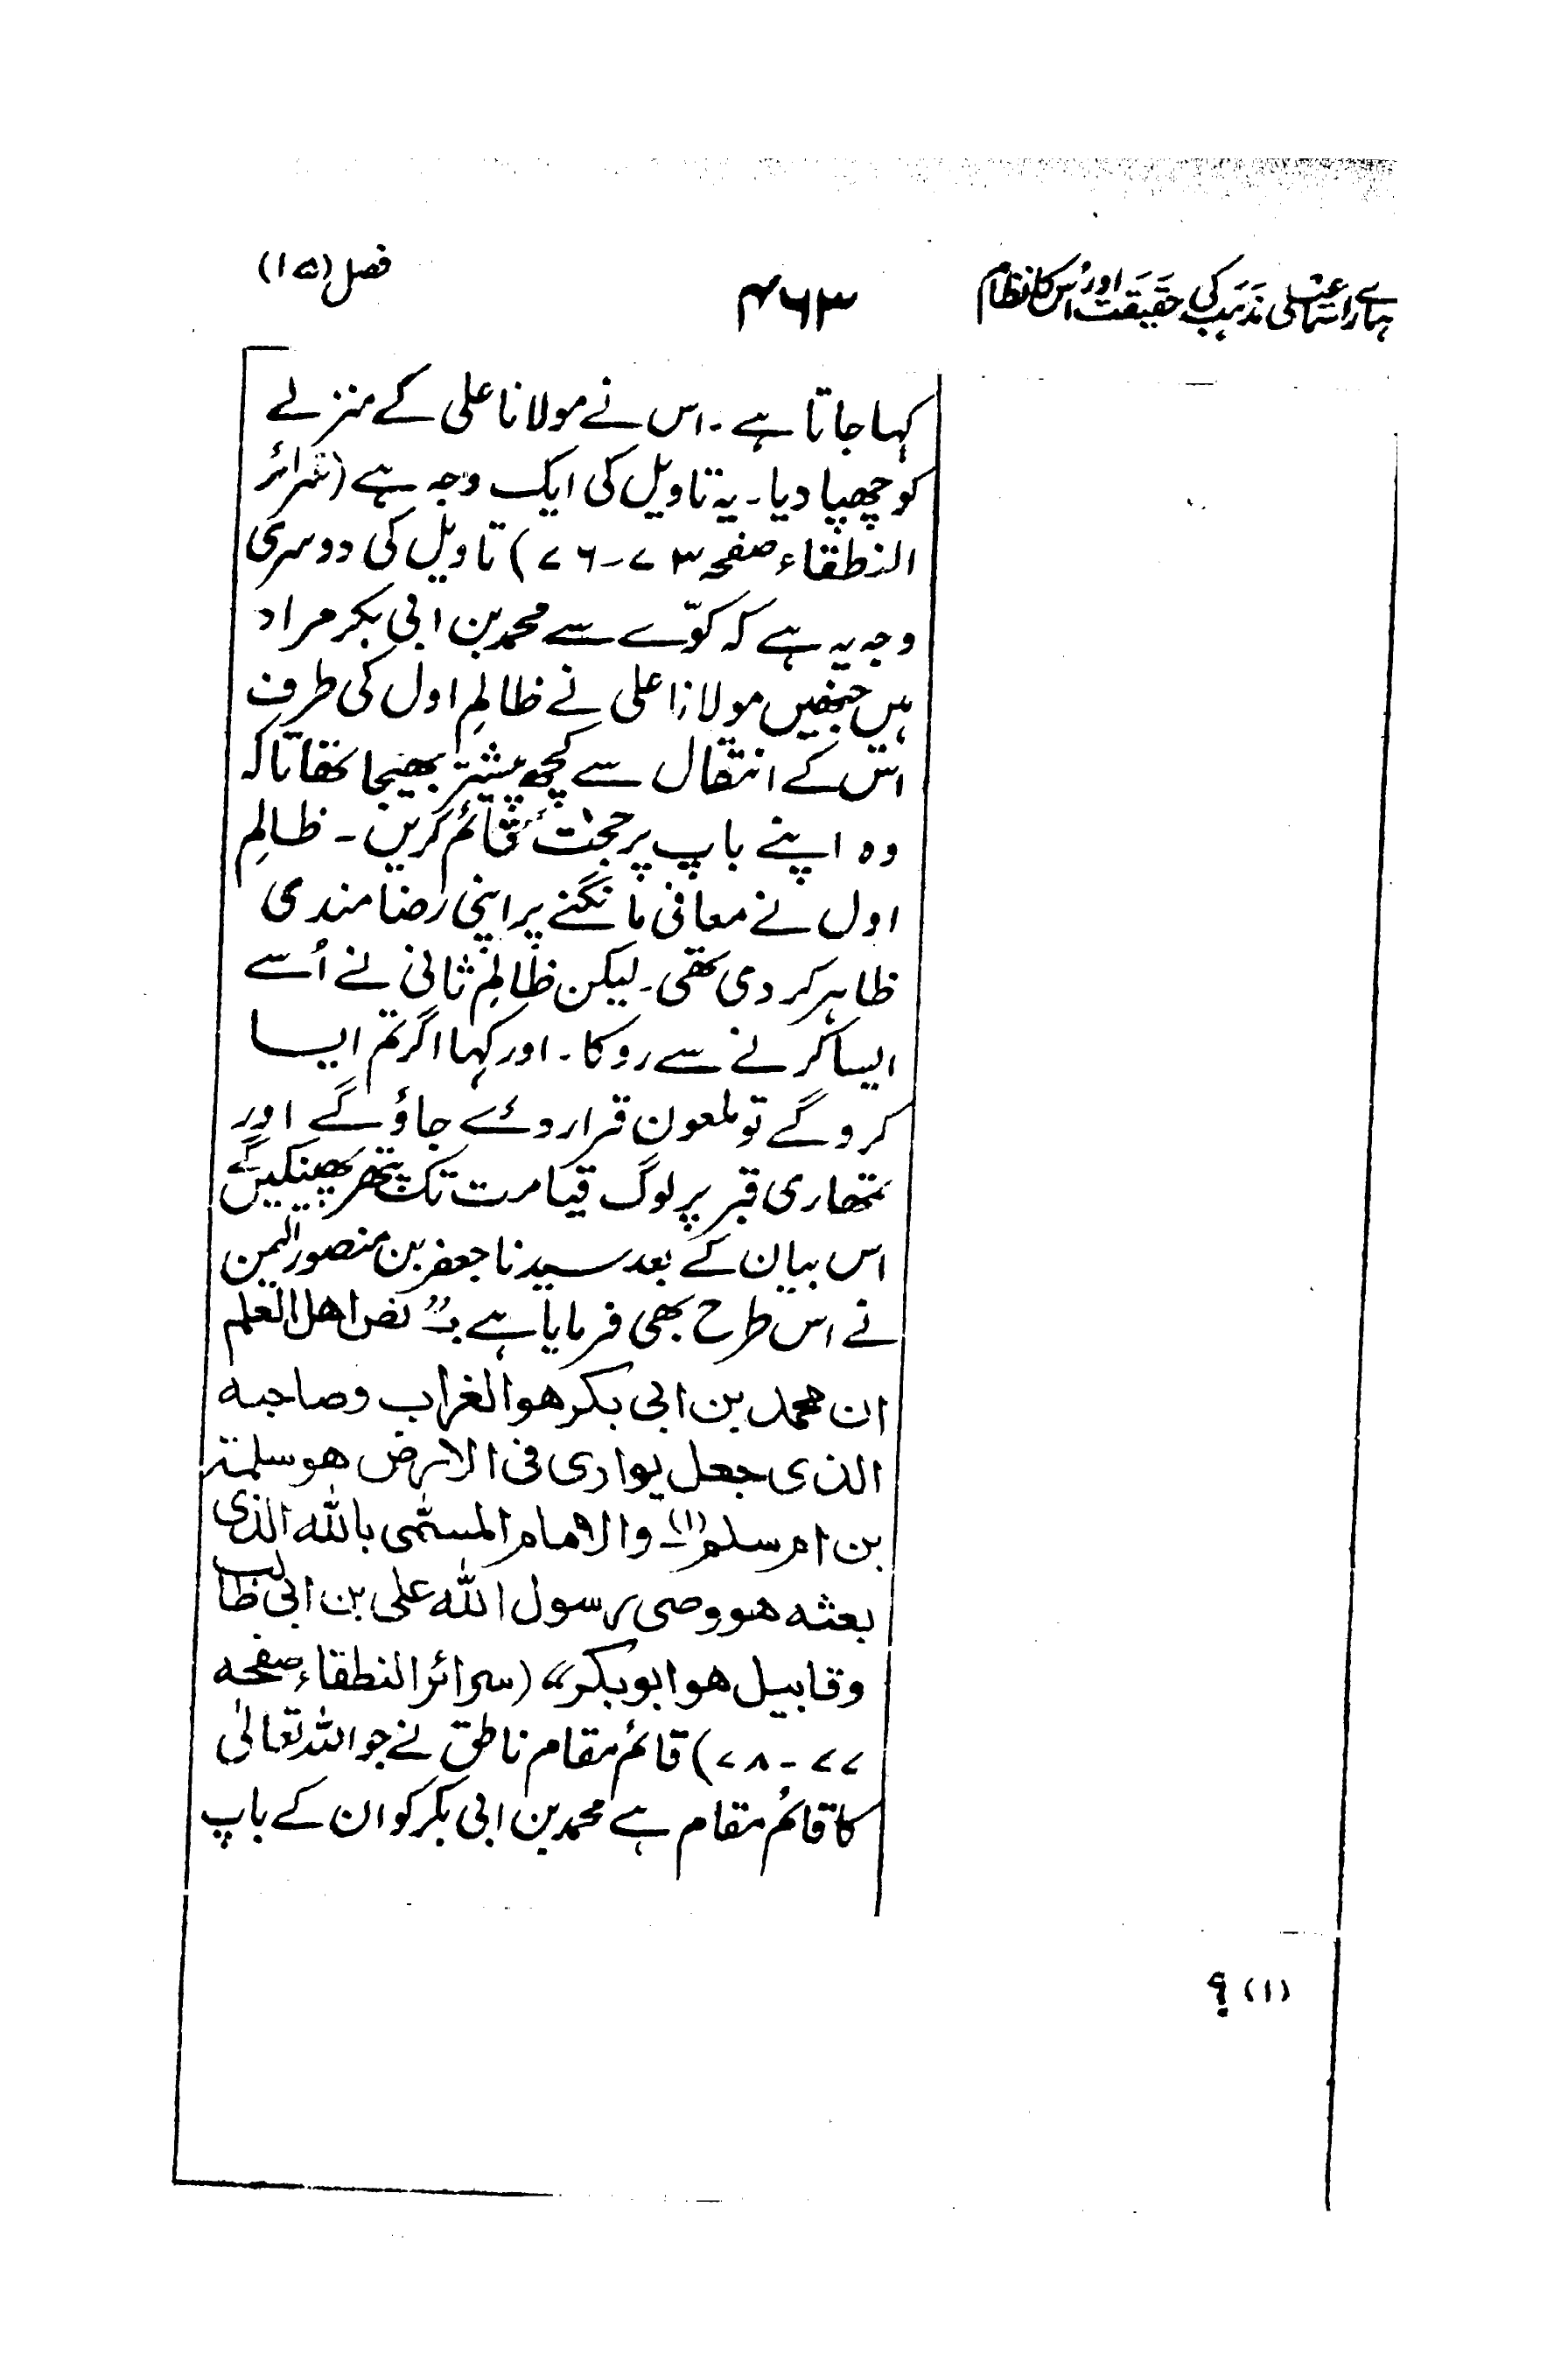 ہمارے اسماعیلی مذہب کی حقیقت اور اُس کا نظام
۴۶۳
فصل (۱۵)
کہا جاتا ہے ۔ اس نے مولانا علی کے منزلے
کو چھپا دیا ۔ یہ تاویل کی ایک وجہ ہے (سرائر
النطقاء صفحہ ۷۳-۷۶) تاویل کی دوسری
وجہ یہ ہے کہ کوّے سے محمد بن ابی بکر مراد
ہیں جنھیں مولانا علی نے ظالمِ اول کی طرف
اس کے انتقال سے کچھ پیشتر بھیجا تھا تاکہ
وہ اپنے باپ پر حجت قائم کریں ۔ ظالمِ
اول نے معافی مانگنے پر اپنی رضامندی
ظاہر کر دی تھی ۔ لیکن ظالمِ ثانی نے اُسے
ایسا کرنے سے روکا ۔ اور کہا اگر تم ایسا
کرو گے تو ملعون قرار دئے جاؤ گے اور
تمھاری قبر پر لوگ قیامت تک پتھر پھینکیں گے
اس بیان کے بعد سیدنا جعفر بن منصور الیمن
نے اس طرح بھی فرمایا ہے :۔ ”نص اھل العلم
ان محمد بن ابی بکر ھو الغراب وصاحبه
الذی جعل یواری فی الارض ھو سلمۃ
بن ام سلم (۱) والامام المسمّی باللہ الذی
بعثه ھو وصی رسول اللہ علی بن ابی طالب
وقابیل ھو ابوبکر“ (سرائر النطقاء صفحہ
۷۷ - ۷۸) قائم مقام ناطق نے جو اللہ تعالیٰ
کا قائم مقام ہے محمد بن ابی بکر کو ان کے باپ
(۱) ؟